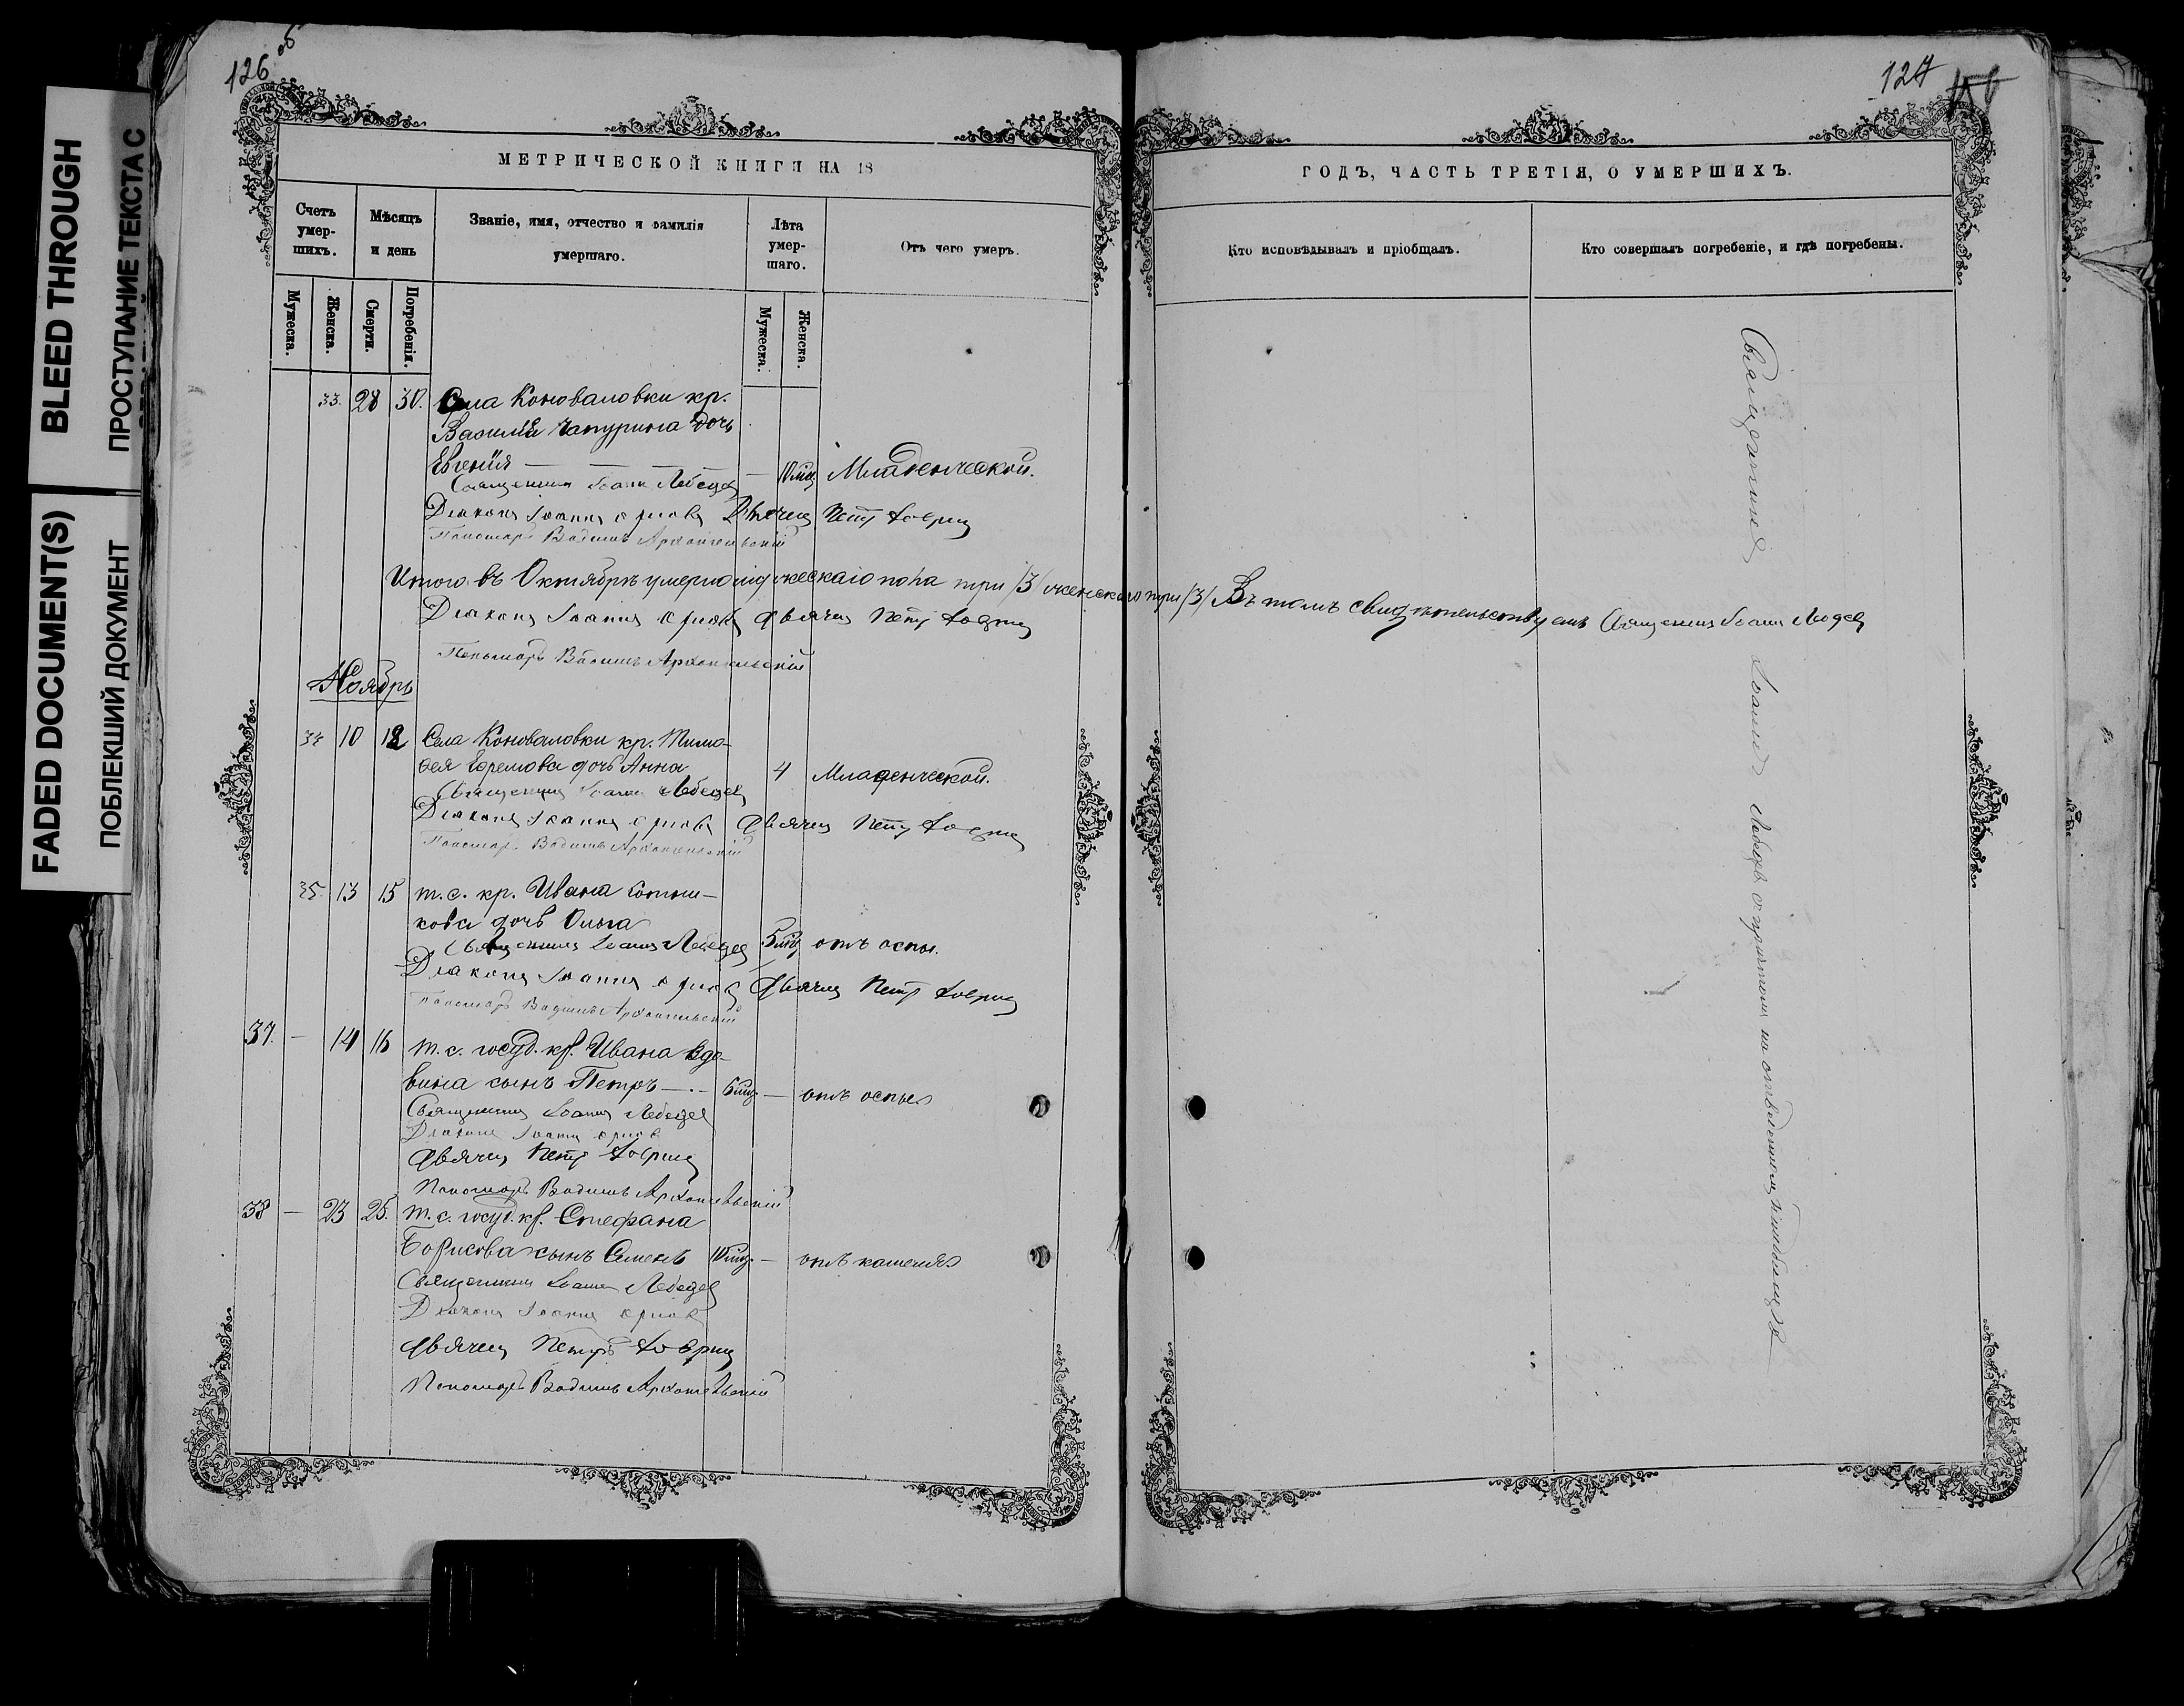 BLEED THROUGH
ПРОСТУПАНИЕ ТЕКСТА С
FADED DOCUMENT(S)
ПОБЛЕКШИЙ ДОКУМЕНТ
126 об
МЕТРИЧЕСКОЙ КНИГИ НА 18
Счетъ умер-шихъ.
Мѣсяцъ и день
Званіе, имя, отчество и фамилія умершаго.
Лѣта умер-шаго.
Отъ чего умеръ.
Мужеска.
Женска.
Смерти.
Погребенія.
Мужеска.
Женска.
33. 28 30. Села Коноваловки кр.
Василія Чапурина дочь
Евгенія — — — — 10 мц. Младенческой.
Священникъ Іоаннъ Лебедев
Діаконъ Іоаннъ Орлов Дьячекъ Петръ
Пономарь Вадимъ Архангельскій
Итого въ Октябрѣ умерло мужескаго пола три /3/ женскаго три /3/ Въ томъ свидѣтельствуемъ Священникъ Іоаннъ Лебедев
Діаконъ Іоаннъ Орлов Дьячекъ Петръ
Пономарь Вадимъ Архангельскій
Ноябрь
34 10 12 Села Коноваловки кр. Тимо-
фея Ефремова дочь Анна 4 Младенческой.
Священникъ Іоаннъ Лебедев
Діаконъ Іоаннъ Орлов Дьячекъ Петръ
Пономарь Вадимъ Архангельскій
35. 13 15 т. с. кр. Ивана
кова дочь Ольга
Священникъ Іоаннъ Лебедев 5 мц отъ оспы.
Діаконъ Іоаннъ Орлов Дьячекъ Петръ
Пономарь Вадимъ Архангельскій
37. — 14 16 т. с. госуд. кр. Ивана Вдо-
вина сынъ Петръ — . — 6 мц. — отъ оспы
Священникъ Іоаннъ Лебедев
Діаконъ Іоаннъ Орлов
Дьячекъ Петръ
Пономарь Вадимъ Архангельскій
38 — 23 25. т. с. госуд. кр. Стефана
Борисова сынъ Семенъ 10 мц. — отъ кашеля
Священникъ Іоаннъ Лебедев
Діаконъ Іоаннъ Орлов
Дьячекъ Петръ
Пономарь Вадимъ Архангельскій
127
ГОДЪ, ЧАСТЬ ТРЕТІЯ, О УМЕРШИХЪ.
Кто исповѣдывалъ и пріобщалъ.
Кто совершалъ погребеніе, и гдѣ погребены.
Священникъ Іоаннъ Лебедевъ съ причтомъ на отведенномъ кладбищѣ